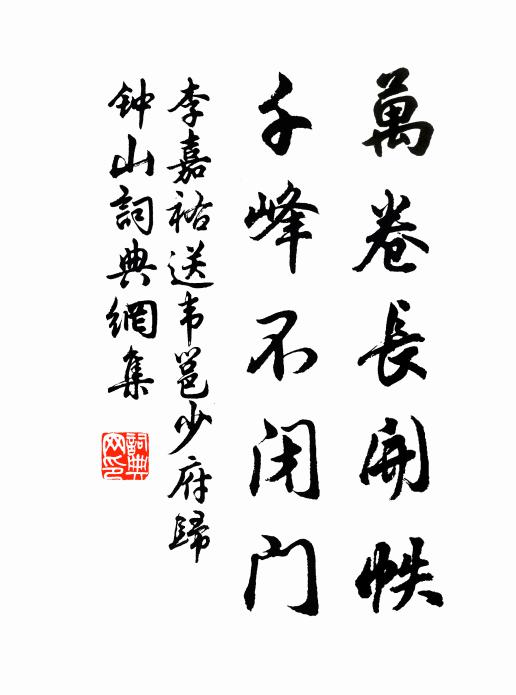 萬卷長開帙
千峰不闭门
李嘉祐送韦邕少府歸
钟山詞典網集
詞典网印